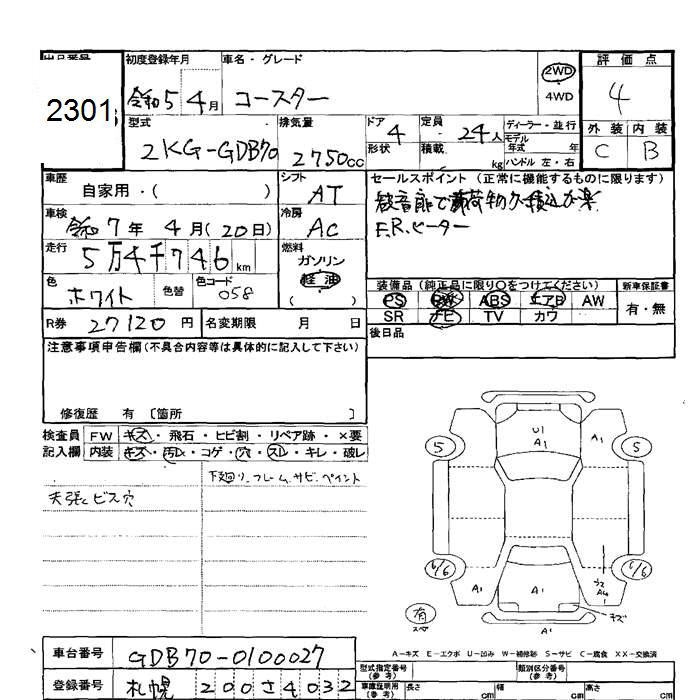 出品番号
2301
初度登録年月
令和5年4月
車名・グレード
コースター
2WD
4WD
評価点
4
外装 内装
C B
型式
2KG-GDB70
排気量
2750cc
ドア 4
形状
定員 24人
積載 kg
ディーラー・並行
モデル
年式 年
ハンドル 左・右
車歴
自家用・( )
シフト
AT
車検
令和7年4月(20日)
冷房
AC
走行
5万4千746km
燃料
ガソリン
軽油
( )
色
ホワイト
色替
色コード
058
R券 27120円
名変期限 月 日
セールスポイント(正常に機能するものに限ります)
F,R,ヒーター
装備品(純正品に限り○をつけてください)
PS PW ABS エアB AW
SR ナビ TV カワ
新車保証書
有・無
後日品
注意事項申告欄(不具合内容等は具体的に記入して下さい)
修復歴 有〔箇所 〕
検査員 FW キズ・飛石・ヒビ割・リペア跡・×要
記入欄 内装 キズ・汚レ・コゲ・穴・スレ・キレ・破レ
天張ビス穴
下廻り、フレーム、サビ、ペイント
U1
A1
A1
5
5
6/6
6/6
A1
A1
A4
キズ
有
スペ
A1
A-キズ E-エクボ U-凹み W-補修跡 S-サビ C-腐食 XX-交換済
車台番号 GDB70-0100027
登録番号 札幌 200さ4032
型式指定番号
(参考)
類別区分番号
(参考)
車庫証明用
(参考)
長さ cm
幅 cm
高さ cm